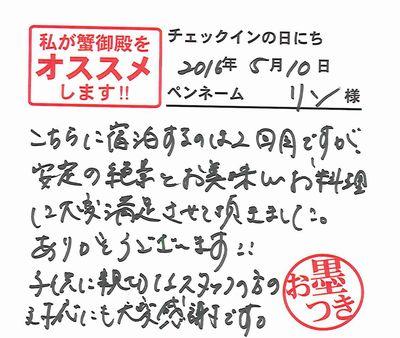 私が蟹御殿を
オススメ
します!!
チェックインの日にち
2016年 5月 10日
ペンネーム リン 様
こちらに宿泊するのは2回目ですが、
安定の絶景とお美味しいお料理
に大変満足させて頂きました。
ありがとうございます!!
子供に親切なスタッフの方の
対応にも大変感謝です。
お墨つき